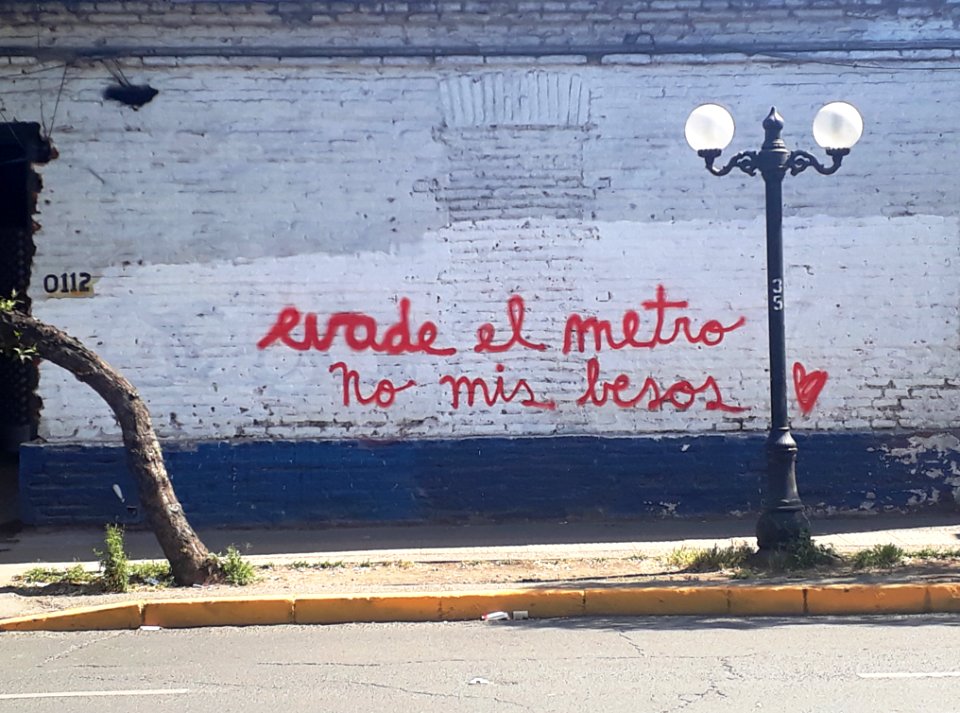 0112
35
evade el metro
no mis besos